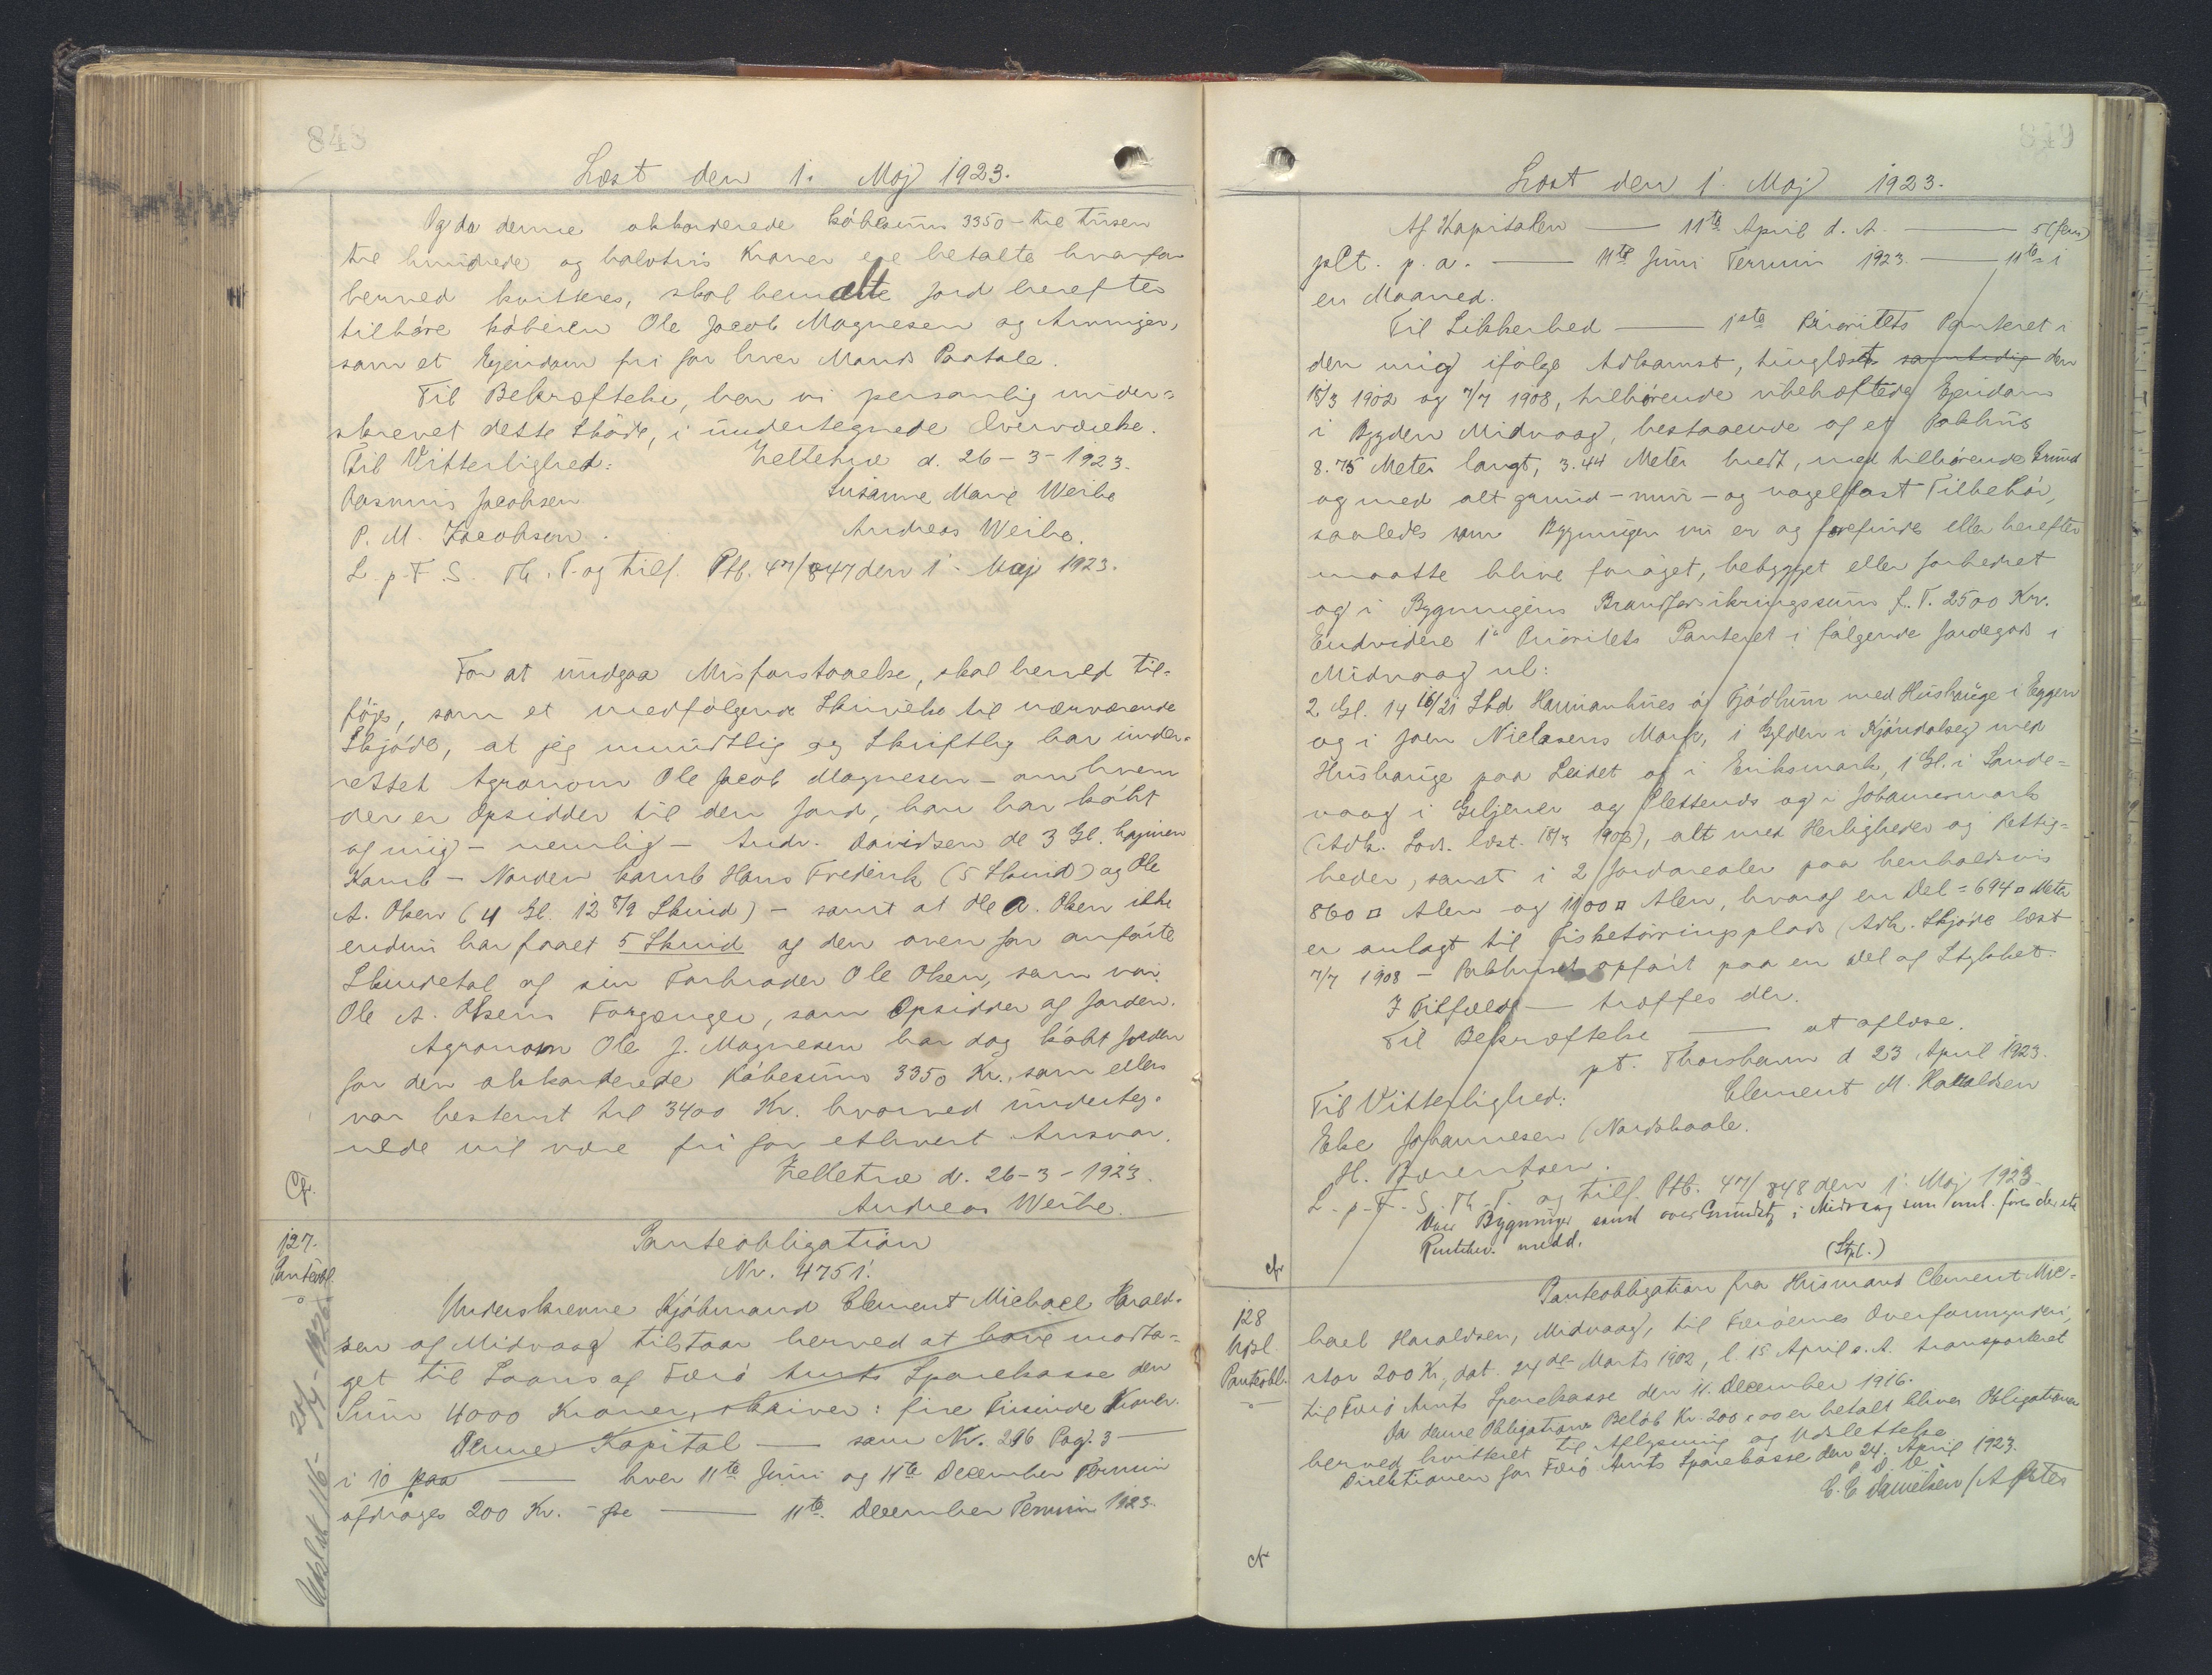 848
Læst den 1. Maj 1923.
Og da denne akkorderede Købesum 3350 - tre Tusen
tre hundrede og halvtres Kroner ere betalte hvorfor
herved kvitteres, skal bemældte Jord herefter
tilhøre køberen Ole Jacob Magnesen og Arvinger,
som et Ejendom fri for hver Mands Paatale.
Til Bekræftelse, har vi personlig under=
skrevet dette Skøde, i undertegnede Overværelse.
Til Vitterlighed: Zelletræ d. 26-3-1923.
Rasmus Jacobsen Susanne Marie Weihe
P. M. Jacobsen. Andreas Weihe.
L. p. F. S. Th. T. og tilf. Ptb. 47/847 den 1. Maj 1923.
For at undgaa Misforstaaelse, skal herved til=
føjes, som et medfølgende Skrivelse til nærværende
Skjøde, at jeg mundtlig og Skriftlig har under=
rettet Agronom Ole Jacob Magnesen - om hvem
der er Opsidder til den Jord, han har købt
af mig - nemlig - Andr. Davidsen de 3 Gl.
Kamb - Norden kamb Hans Frederik (5 Skind) og Ole
A. Olsen (4 Gl. 12 8/9 Skind) - samt at Ole A. Olsen ikke
endnu har faaet 5 Skind af den oven for anførte
Skindetal af sin Farbroder Ole Olsen, som var
Ole A. Olsens Forgænger, som Opsidder af Jorden.
Agronom Ole J. Magnesen har dog købt Jorden
for den akkorderede Købesum 3350 Kr., som ellers
var bestemt til 3400 Kr. hvorved underteg=
nede vil være fri for ethvert Ansvar.
Zelletræ d. 26-3-1923.
Andreas Weihe.
Cfr.
127.
Panteobl.
Panteobligation
Nr. 4751.
Underskrevne Kjøbmand Clement Michael Harald=
sen af Midvaag tilstaar herved at have modta=
get til Laans af Færø Amts Sparekasse den
Sum 4000 Kroner, skriver: fire Tusinde Kroner.
Denne Kapital — som Nr. 296 Pag. 3 —
i 10 paa — hver 11te Juni og 11te December Termin
afdrages 200 Kr. — 11te December Termin 1923.
849
Læst den 1. Maj 1923.
Af Kapitalen — 11te April d. A. — 5 (fem)
pCt. p. a. — 11te Juni Termin 1923 — 11te i
en Maaned.
Til Sikkerhed — 1ste Prioritets Panteret i
den mig ifølge Adkomst, tinglæst samtidig den
18/3 1902 og 7/7 1908, tilhørende ubehæftede Ejendom
i Bygden Midvaag, bestaaende af et Pakhus
8.75 Meter langt, 3.44 Meter bredt, med tilhørende Grund
og med alt grund- mur- og nagelfast Tilbehør,
saaledes som Bygningen nu er og forefindes eller herefter
maatte blive forøget, bebygget eller forbedret
og i Bygningens Brandforsikringssum f. T. 2500 Kr.
Endvidere 1ste Prioritets Panteret i følgende Jordegods i
Midvaag nl:
2 Gl. 14 16/21 Skd Hammanhues á Fjódhum med Hushauge i Eggen
og i Joen Nielasens Mark, i Gylden i Kjóndalseg med
Hushauge paa Leidet og i Eriksmark, 1 Gl. i Sande=
vaag i Giljener og Slettends og i Johannesmark
(Adk. Sods. læst. 18/3 1902), alt med Herligheder og Rettig=
heder, samt i 2 Jordarealer paa henholdsvis
860 □ Alen og 1100 □ Alen, hvoraf en Del = 694 □ Meter
er anlagt til Fisketørringsplads (Adk. Skjøde læst
7/7 1908 - Pakhuset opført paa en Del af Stykket.
I Tilfælde — træffes der.
Til Bekræftelse — at aflæse.
pt. Thorshavn d 23 April 1923.
Til Vitterlighed: Clement M. Haraldsen
Else Johannesen / Nordskaale.
H. Berentsen.
L. p. F. S. Th. T. og tilf. Ptb. 47/848 den 1. Maj 1923.
Over Bygninger samt over Grundstk i Midvaag
medd.
(Stpl.)
cfr
128
Udsl.
Panteobl.
Panteobligation fra Husmand Clement Mic=
hael Haraldsen, Midvaag, til Færøernes Overformynderi,
stor 200 Kr, dat. 24de Marts 1902, l. 15 April s. A. transporteret
til Færø Amts Sparekasse den 11. December 1916.
Da denne Obligations Beløb Kr. 200,00 er betalt bliver Obligationen
herved kvitteret til Aflysning og Udslettelse
Direktionen for Færø Amts Sparekasse den 24. April 1923.
C. C Danielsen / A
cfr